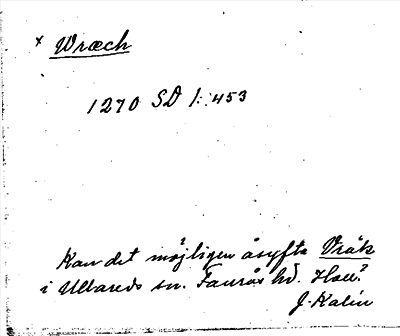 × Wræch
1270 SD 1:453
Kan det möjligen åsyfta Vräk
i Ullareds sn. Faurås hd. Hall?
J. Kalén